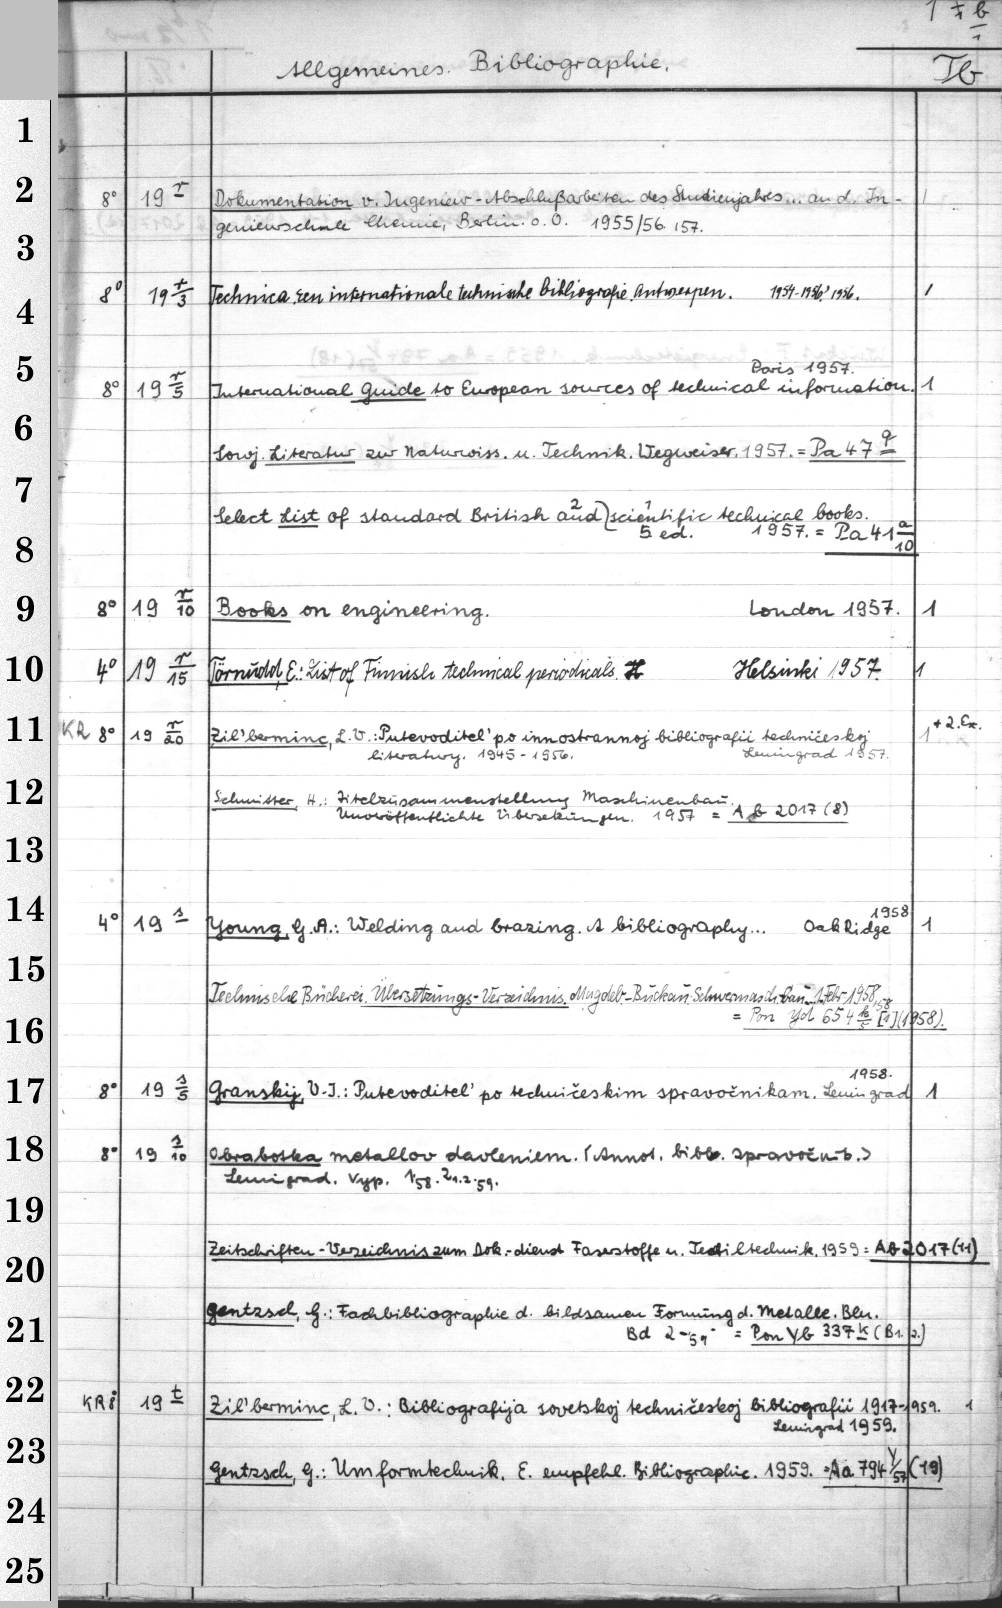 1 Tb
1
Allgemeines. Bibliographie. Tb
1
2 8° 19 r Dokumentation v. Ingenieur-Abschlußarbeiten des Studienjahres... an d. In- 1
genieurschule Chemie, Berlin. o.O. 1955/56. 157.
3
8° 19 r/3 Technica, een internationale technische bibliografie. Antwerpen. 1954-1956, 1956. 1
4
5 Paris 1957.
8° 19 r/5 International Guide to European sources of technical information. 1
6 Sowj. Literatur zur Naturwiss. u. Technik. Wegweiser. 1957. = Pa 47 q
7
Select List of standard British and scientific technical books.
2 1
8 5 ed. 1957. = Pa 41 a/10
9 8° 19 r/10 Books on engineering. London 1957. 1
10 4° 19 r/15 Törnudd, E.: List of Finnish technical periodicals. Helsinki 1957. 1
11 KR 8° 19 r/20 Zil'berminc, L.V.: Putevoditel' po innostrannoj bibliografii techničeskoj 1 + 2. Ex.
literatury. 1945-1956. Leningrad 1957.
12 Schmitter, H.: Titelzusammenstellung Maschinenbau.
Unveröffentlichte Übersetzungen. 1957 = Ab 2017 (8)
13
14 1958
4° 19 s Young, G.A.: Welding and brazing. A bibliography... Oak Ridge 1
15
Technische Bücherei. Übersetzungs-Verzeichnis. Magdeb-Buckau: Schwermasch.bau 1. Febr 1958, 58
16 = Pon Yd 654 k/5 [1] (1958).
1958.
17 8° 19 s/5 Granskij, V.I.: Putevoditel' po techničeskim spravočnikam. Leningrad 1
18 8° 19 s/10 Obrabotka metallov davleniem. (Annot. bibl. spravočnik.)
Leningrad. Vyp. 1, 58. 2. 59.
19
Zeitschriften-Verzeichnis zum Dok.-dienst Faserstoffe u. Textiltechnik. 1959 = Ab 2017 (11)
20
Gentzsch, G.: Fachbibliographie d. bildsamen Formung d. Metalle. Bln.
21 Bd 2 - 59. = Pon Yb 337 k (B1. 2.)
22
KR 8° 19 t Zil'berminc, L.V.: Bibliografija sovetskoj techničeskoj bibliografii 1917-1959. 1
Leningrad 1959.
23
Gentzsch, G.: Umformtechnik. E. empfehl. Bibliographie. 1959. = Aa 794 y/57 (19)
24
25